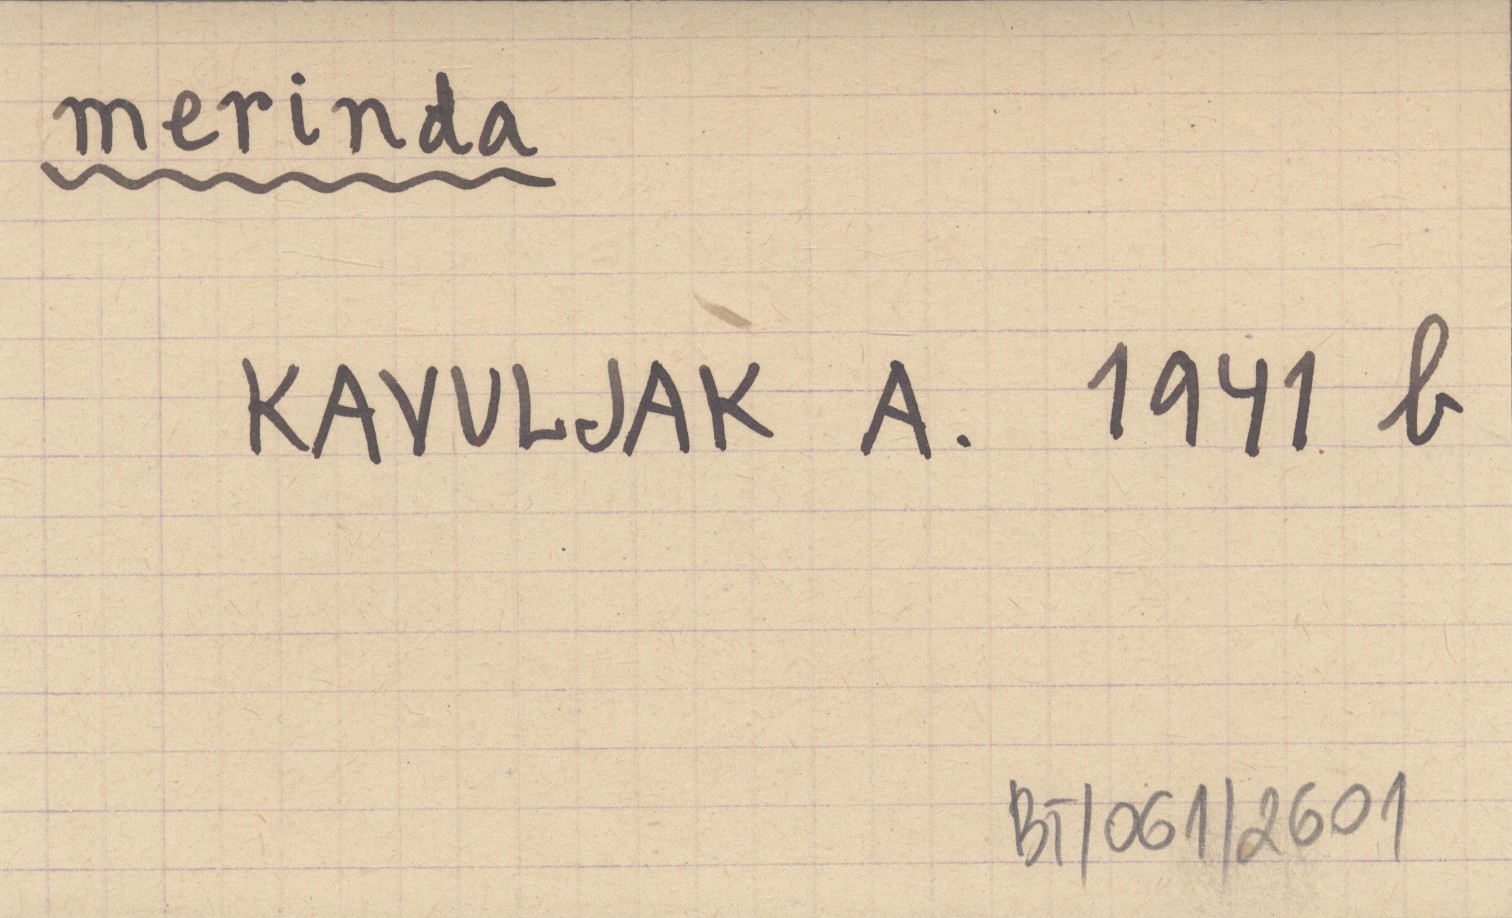 merinda
KAVULJAK A. 1941 b
BT/061/2601